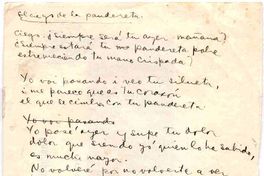 El ciego de la pandereta.
Ciego: ¿Siempre será tu ayer mañana?
¿Siempre estará tu pandereta pobre
estremeciendo tu mano crispada?
Yo voi pasando i veo tu silueta,
i me parece que es tu corazón
el que se cimbra con tu pandereta.
Yo voi pasando
Yo pasé ayer y supe tu dolor
dolor que siendo yo quien lo ha sabido,
es mucho mayor.
No volveré por no volverte a ver